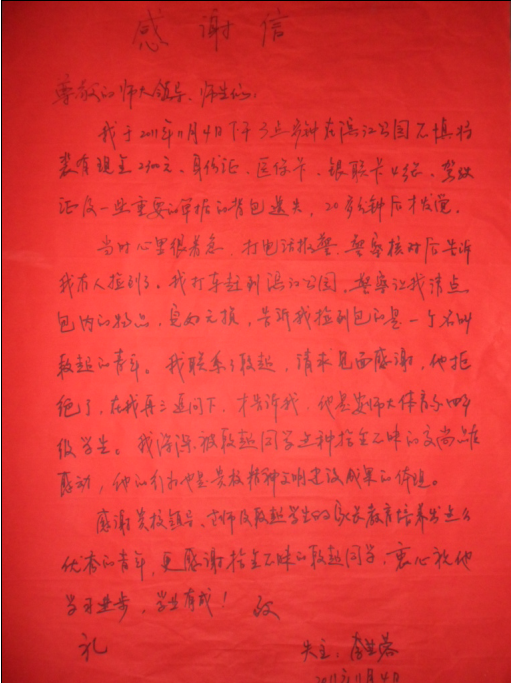 感谢信
尊敬的师大领导、师生们：
我于2011年11月4日下午3点多钟在滨江公园不慎将
装有现金2900元、身份证、医保卡、银联卡、驾驶
证及一些重要的单据的背包遗失，20多分钟后才发觉。
当时心里很着急，打电话报警，警察核对后告诉
我有人捡到了。我打车赶到滨江公园，警察让我清点
包内的物品，完好无损，告诉我捡到包的是一个名叫
殷超的青年。我联系了殷超，请求见面感谢，他拒
绝了，在我再三追问下，才告诉我，他是安师大体育系四年
级学生。我深深被殷超同学这种拾金不昧的高尚品德
感动，他的行为也是贵校精神文明建设成果的体现。
感谢贵校领导、老师及殷超学生的家长教育培养出这么
优秀的青年，更感谢拾金不昧的殷超同学，衷心祝他
学习进步，学业有成！ 致
礼
失主：李
2011年11月4日